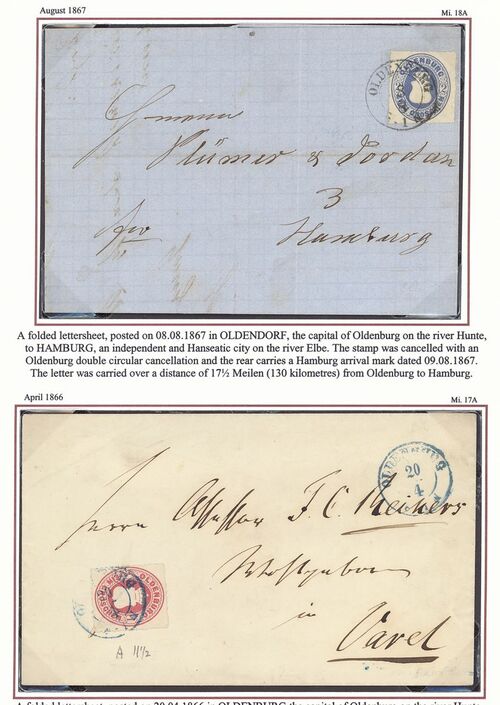 August 1867
Mi. 18A
OLDENBURG
OLDENBURG
Herren
Plümer & Jordan
3
fro
Hamburg
A folded lettersheet, posted on 08.08.1867 in OLDENDORF, the capital of Oldenburg on the river Hunte,
to HAMBURG, an independent and Hanseatic city on the river Elbe. The stamp was cancelled with an
Oldenburg double circular cancellation and the rear carries a Hamburg arrival mark dated 09.08.1867.
The letter was carried over a distance of 17½ Meilen (130 kilometres) from Oldenburg to Hamburg.
April 1866
Mi. 17A
OLDENBURG
20
4
Herrn Assessor F. C.
Wohlgeboren
in
Varel
OLDENBURG
A 11½
A folded lettersheet, posted on 20.04.1866 in OLDENBURG the capital of Oldenburg on the river Hunte